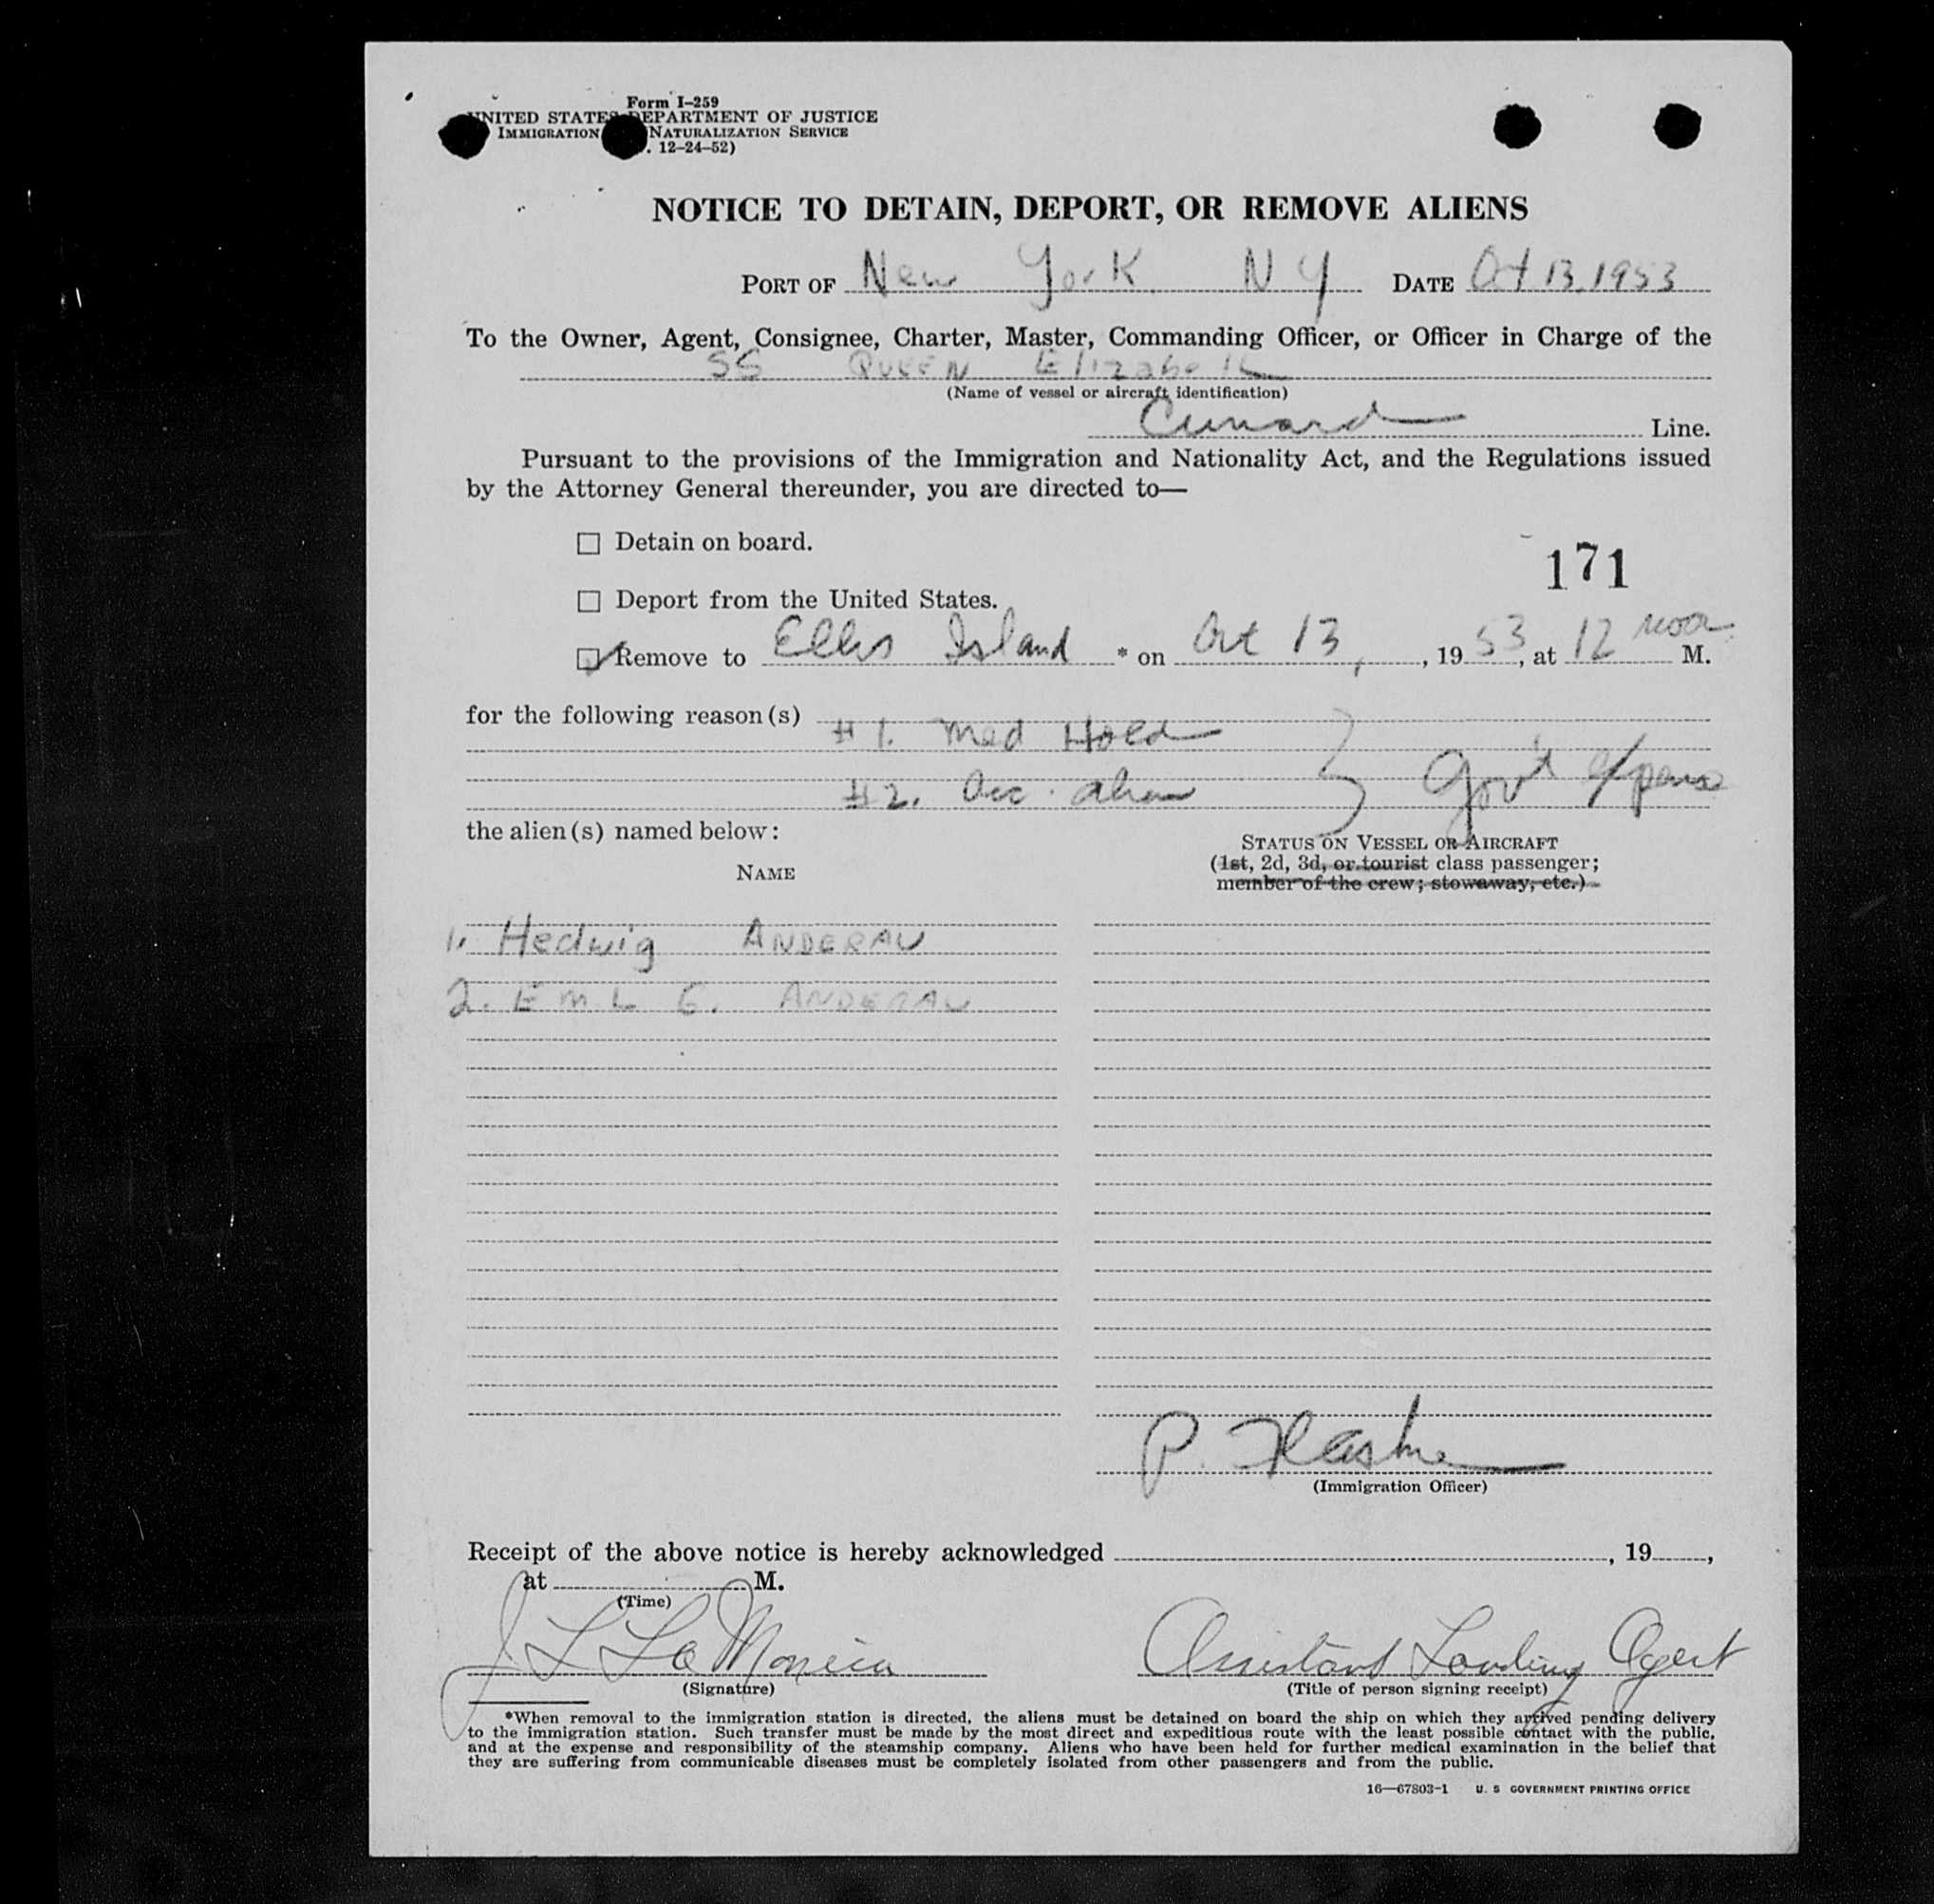 Form I-259
UNITED STATES DEPARTMENT OF JUSTICE
IMMIGRATION NATURALIZATION SERVICE
. 12-24-52)
NOTICE TO DETAIN, DEPORT, OR REMOVE ALIENS
PORT OF New York NY DATE Oct 13, 1953
To the Owner, Agent, Consignee, Charter, Master, Commanding Officer, or Officer in Charge of the
SS QUEEN Elizabeth
(Name of vessel or aircraft identification)
Cunard Line.
Pursuant to the provisions of the Immigration and Nationality Act, and the Regulations issued
by the Attorney General thereunder, you are directed to—
☐ Detain on board.
171
☐ Deport from the United States.
☑ Remove to Ellis Island * on Oct 13, , 1953, at 12 noon M.
for the following reason(s)
#1. Med Hold
#2. Acc. alien } Gov't Expense
the alien(s) named below:
STATUS ON VESSEL OR AIRCRAFT
(1st, 2d, 3d, or tourist class passenger;
NAME
member of the crew; stowaway, etc.)
1. Hedwig ANDERAU
2. EMIL G. ANDERAU
P.
(Immigration Officer)
Receipt of the above notice is hereby acknowledged , 19 ,
at M.
(Time)
J L La Monica Assistant Landing Agent
(Signature) (Title of person signing receipt)
*When removal to the immigration station is directed, the aliens must be detained on board the ship on which they arrived pending delivery
to the immigration station. Such transfer must be made by the most direct and expeditious route with the least possible contact with the public,
and at the expense and responsibility of the steamship company. Aliens who have been held for further medical examination in the belief that
they are suffering from communicable diseases must be completely isolated from other passengers and from the public.
16—67803-1 U. S GOVERNMENT PRINTING OFFICE